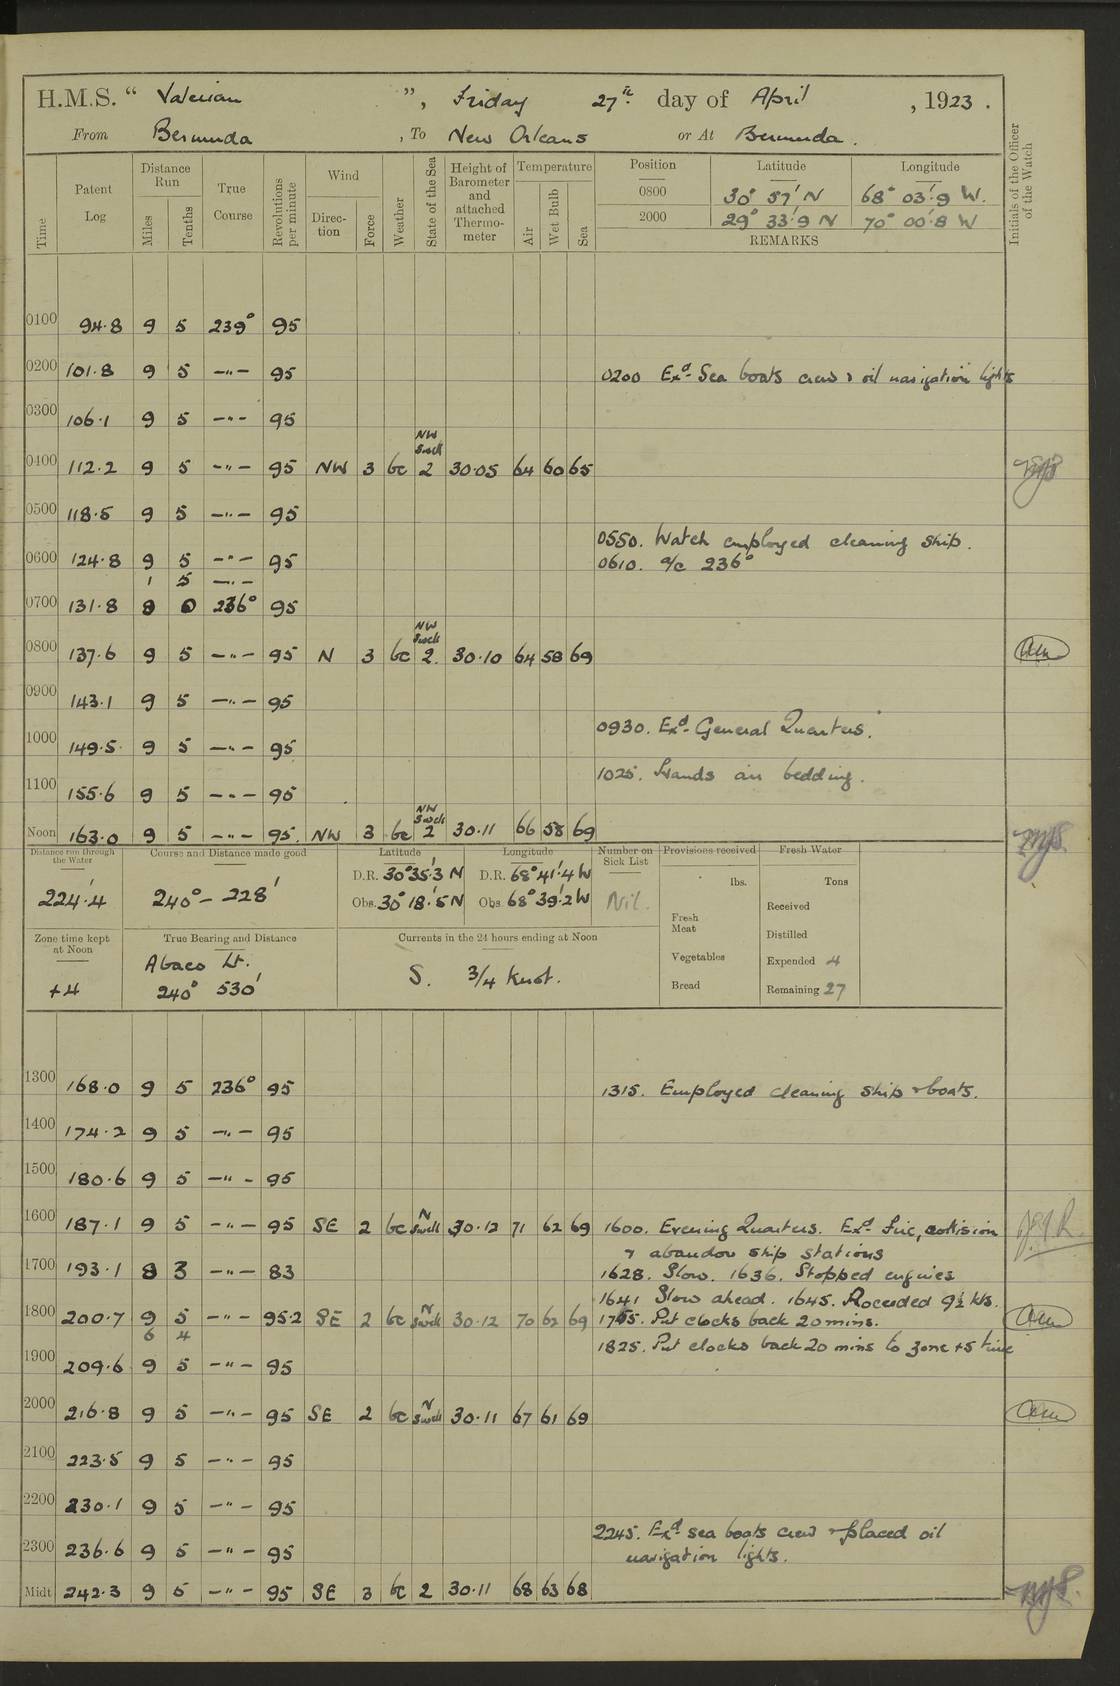 H.M.S. “ Valerian ”, Friday 27th day of April , 1923 .
From Bermuda , To New Orleans or At Bermuda .
Time
Patent Log
Distance Run
Miles
Tenths
True Course
Revolutions per minute
Wind
Direc-tion
Force
Weather
State of the Sea
Height of Barometer and attached Thermo-meter
Temperature
Air
Wet Bulb
Sea
Position Latitude Longitude
0800 30° 57' N 68° 03'.9 W.
2000 29° 33'.9 N 70° 00'.8 W
REMARKS
Initials of the Officer of the Watch
0100 94.8 9 5 239° 95
0200 101.8 9 5 —"— 95 0200 Exd. Sea boats crew & oil navigation lights
0300 106.1 9 5 —"— 95
NW Swell
0400 112.2 9 5 —"— 95 NW 3 bc 2 30.05 64 60 65
0500 118.5 9 5 —"— 95
0550. Watch employed cleaning ship.
0600 124.8 9 5 —"— 95 0610. a/c 236°
1 5 —"—
0700 131.8 8 0 236° 95
NW Swell
0800 137.6 9 5 —"— 95 N 3 bc 2. 30.10 64 58 69
0900 143.1 9 5 —"— 95
0930. Exd. General Quarters.
1000 149.5 9 5 —"— 95
1025. Hands air bedding.
1100 155.6 9 5 —"— 95
NW Swell
Noon 163.0 9 5 —"— 95. NW 3 bc 2 30.11 66 58 69
Distance run through the Water
224'.4
Course and Distance made good
240° – 228'
Latitude
D.R. 30° 35'.3 N
Obs. 30° 18'.5 N
Longitude
D.R. 68° 41'.4 W
Obs. 68° 39'.2 W
Number on Sick List
Nil.
Provisions received
lbs.
Fresh Meat
Vegetables
Bread
Fresh Water
Tons
Received
Distilled
Expended 4
Remaining 27
Zone time kept at Noon
+4
True Bearing and Distance
Abaco Lt.
240° 530'
Currents in the 24 hours ending at Noon
S. 3/4 Knot.
1300 168.0 9 5 236° 95 1315. Employed cleaning ship & boats.
1400 174.2 9 5 —"— 95
1500 180.6 9 5 —"— 95
N
1600 187.1 9 5 —"— 95 SE 2 bc Swell 30.12 71 62 69 1600. Evening Quarters. Exd. Fire, collision
& abandon ship stations
1700 193.1 8 3 —"— 83 1628. Slow. 1636. Stopped engines
1641 Slow ahead. 1645. Proceeded 9½ kts.
N
1800 200.7 9 5 —"— 95.2 SE 2 bc Swell 30.12 70 62 69 1745. Put clocks back 20 mins.
6 4
1825. Put clocks back 20 mins to zone +5 time
1900 209.6 9 5 —"— 95
N
2000 216.8 9 5 —"— 95 SE 2 bc Swell 30.11 67 61 69
2100 223.5 9 5 —"— 95
2200 230.1 9 5 —"— 95
2245. Exd. sea boats crew & placed oil
2300 236.6 9 5 —"— 95 navigation lights.
Midt 242.3 9 5 —"— 95 SE 3 bc 2 30.11 68 63 68